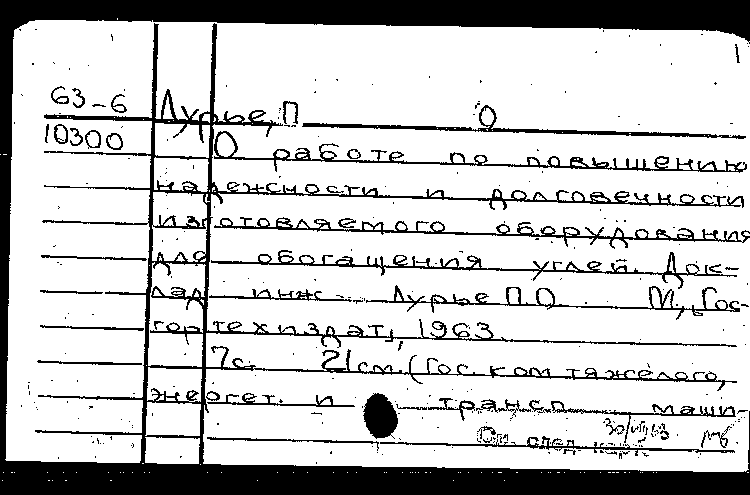 63-6 Лурье, П О
10300 О работе по повышению
надежности и долговечности
изготовляемого оборудования
для обогащения углей. Док-
лад инж. Лурье П.О. М., „Гос-
гортехиздат", 1963.
7с. 21см. (Гос. ком тяжелого,
энергет. и трансп. маши-
См. след. карт.